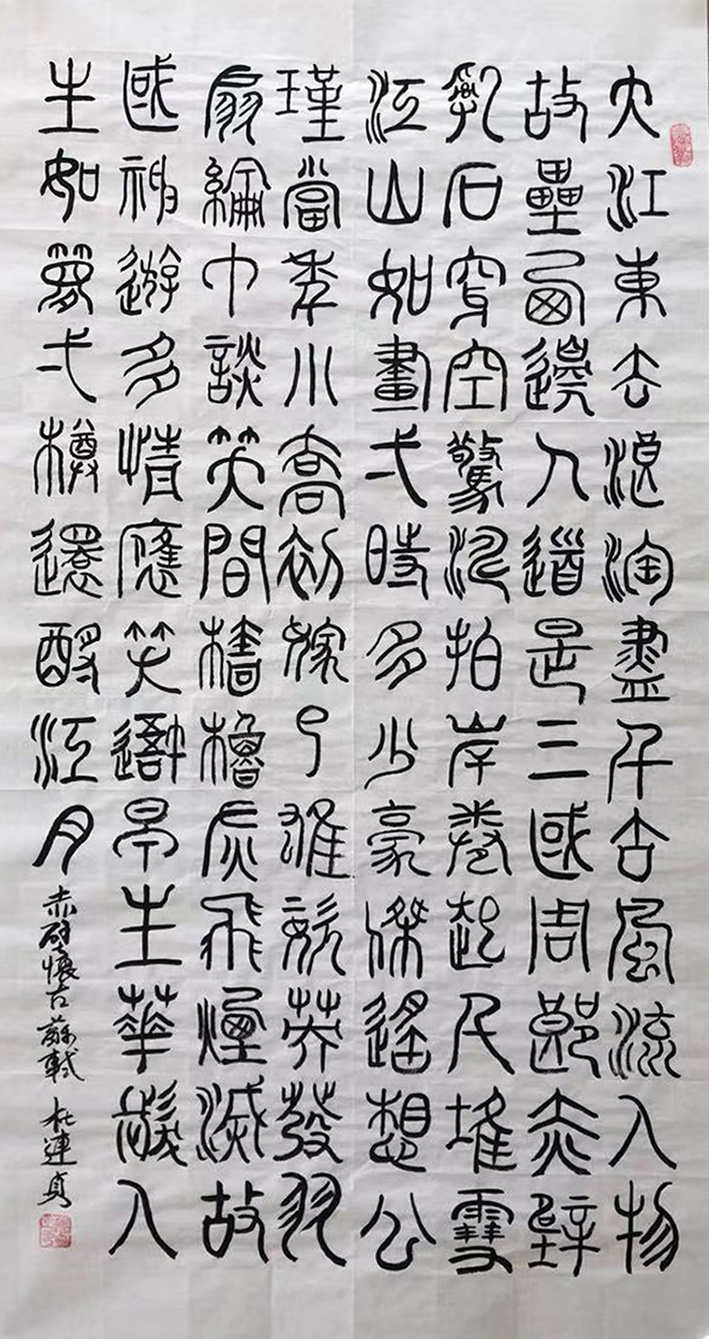 大江東去浪淘盡千古風流人物
故壘西邊人道是三國周郎赤壁
亂石穿空驚濤拍岸卷起千堆雪
江山如畫弌時多少豪傑遙想公
瑾當年小喬初嫁了雄姿英發羽
扇綸巾談笑間檣櫓灰飛煙滅故
國神遊多情應笑我早生華髮人
生如夢弌樽還酹江月
赤壁懷古蘇軾 杜連貞